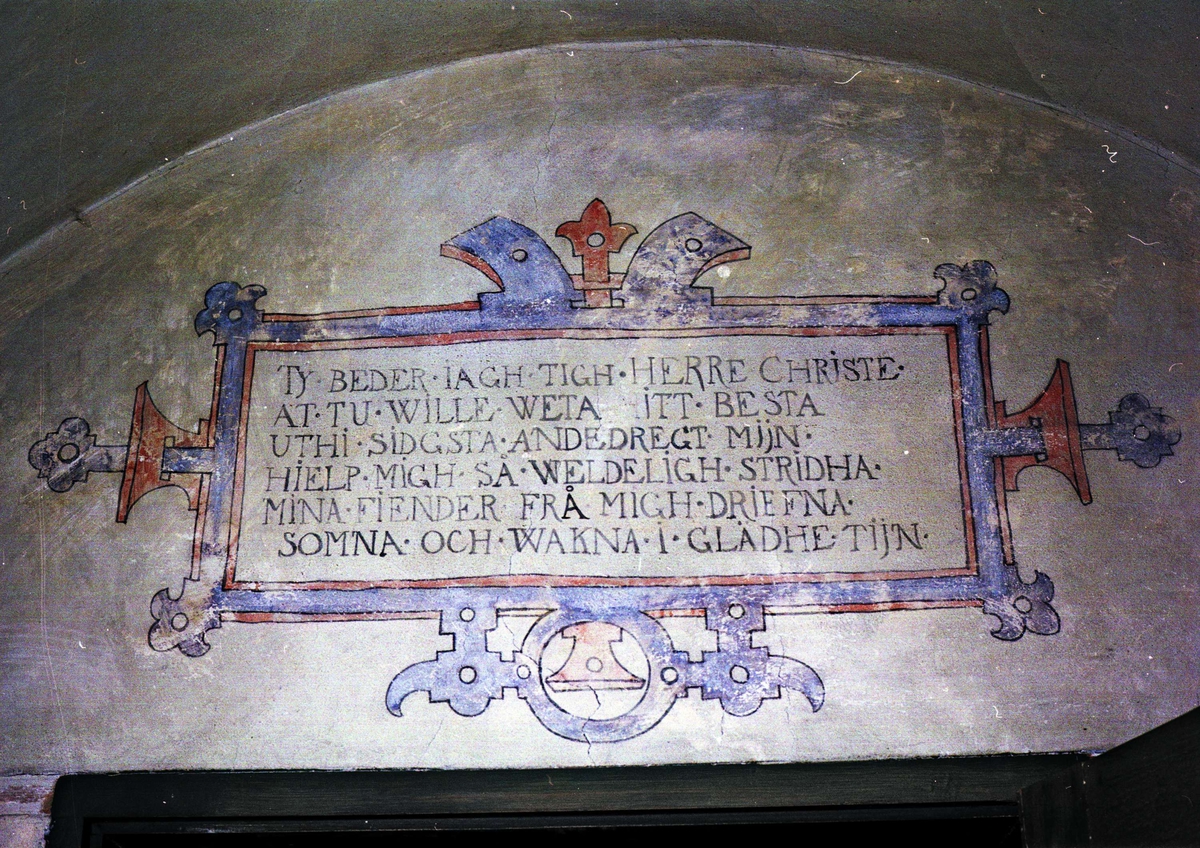 TY · BEDER · IAGH · TIGH · HERRE CHRISTE ·
AT · TU · WILLE · WETA ITT · BESTA
UTHI · SIDGSTA · ANDEDREGT · MIJN ·
HIELP · MIGH · SA · WELDELIGH · STRIDHA ·
MINA · FIENDER FRÅ MIGH · DRIEFNA ·
SOMNA · OCH · WAKNA · I · GLÄDHE · TIJN ·